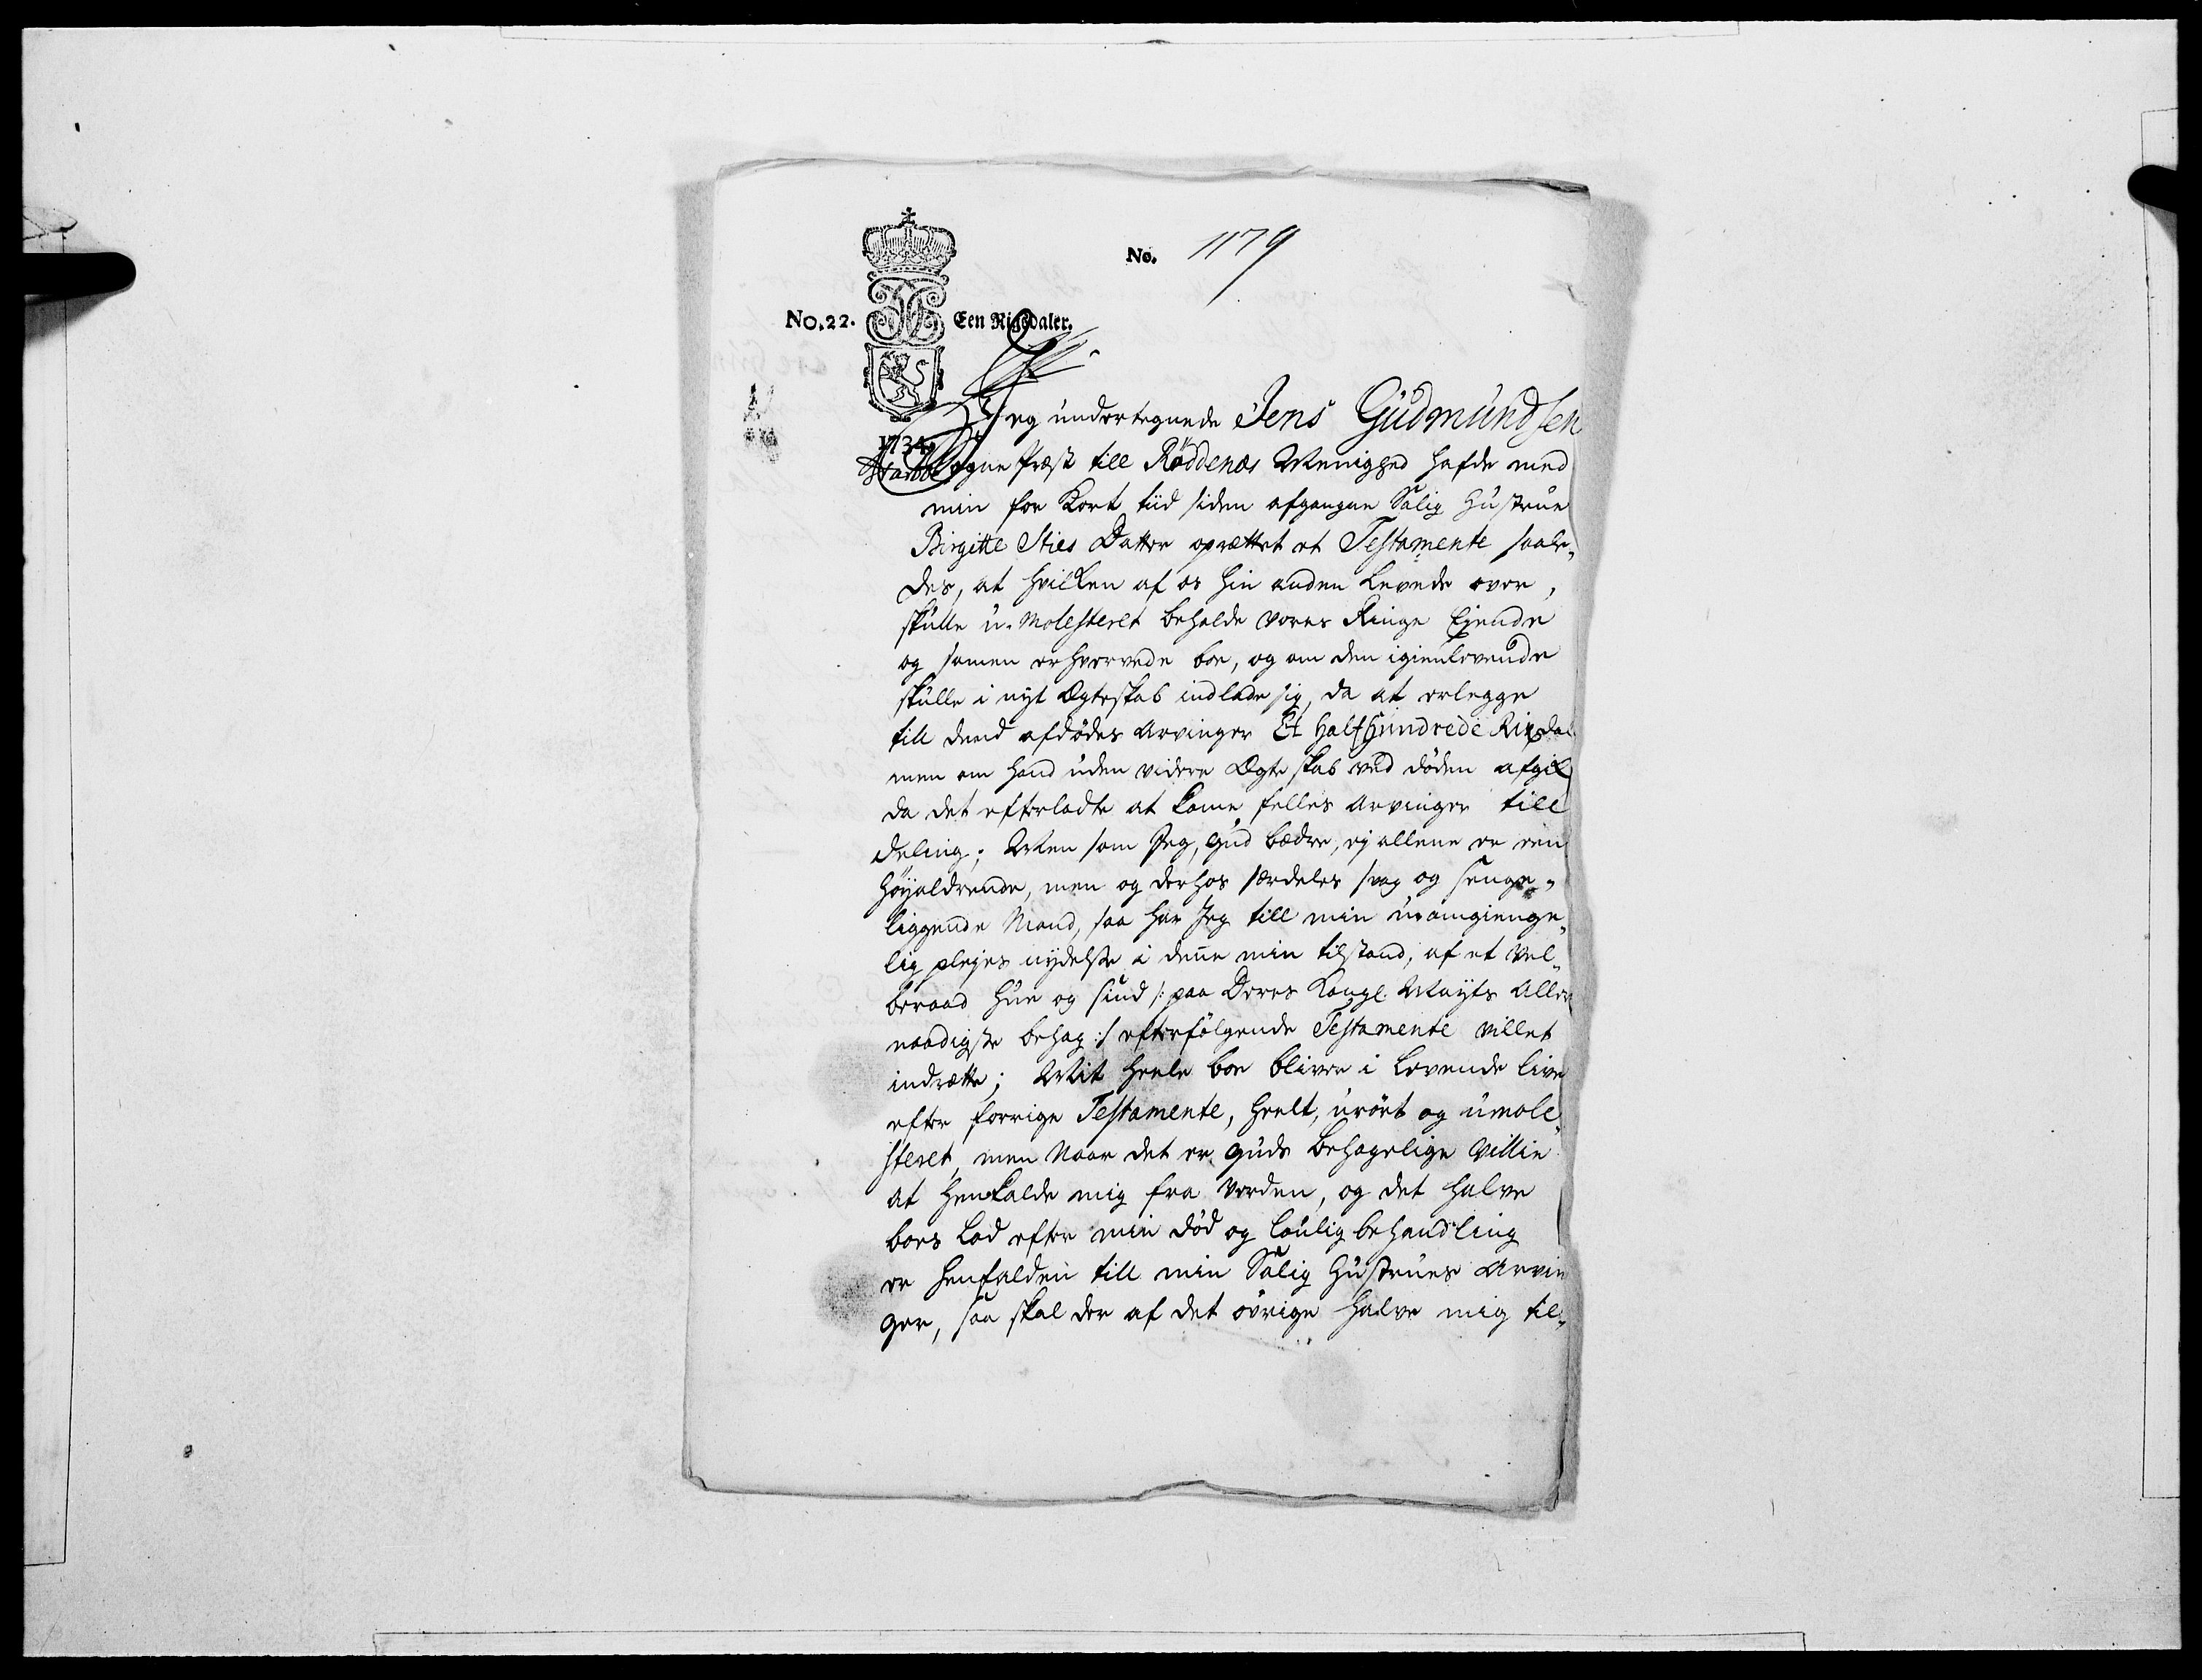 No. 1179
No. 22. Een Rigsdaler.
1734.
Jeg undertegnede Jens Gudmundsen
Sogne Præst till Røddenæs Menighed hafde med
min for kort tiid siden afgangne Salig Hustrue
Birgitte Sties Datter oprættet et Testamente saale„
des, at hvilken af os hin anden levede over,
skulle u-molesteret beholde vores Ringe Ejende
og samen erhvervede boe, og om den igienlevende
skulle i nyt Ægteskab indlade sig, da at erlegge
till dend afdødes Arvinger Et Half Hundrede Rixdal
men om hand uden videre Ægteskab ved døden afgik
da det efterladte at kome felles Arvinger till
deling; Men som Jeg, Gud bædre, ej allene er een
høyaldrende, men og derhos særdeles svag og senge„
liggende Mand, saa har Jeg till min uomgienge„
lig plejes nydelse i denne min tilstand, af et Vel„
beraad hue og sind /: paa Deres Kongl. Mayts Aller
naadigste behag :/ efterfølgende Testamente villet
indrætte; Mit heele boe bliver i levende live
efter forrige Testamente, heelt, urørt og umole„
steret, men Naar det er Guds behagelige Villie
at henkalde mig fra Verden, og det halve
boes Lod efter min død og loulig behandling
er henfalden till min Salig Hustrues Arvin
ger, saa skal der af det øvrige halve mig til„